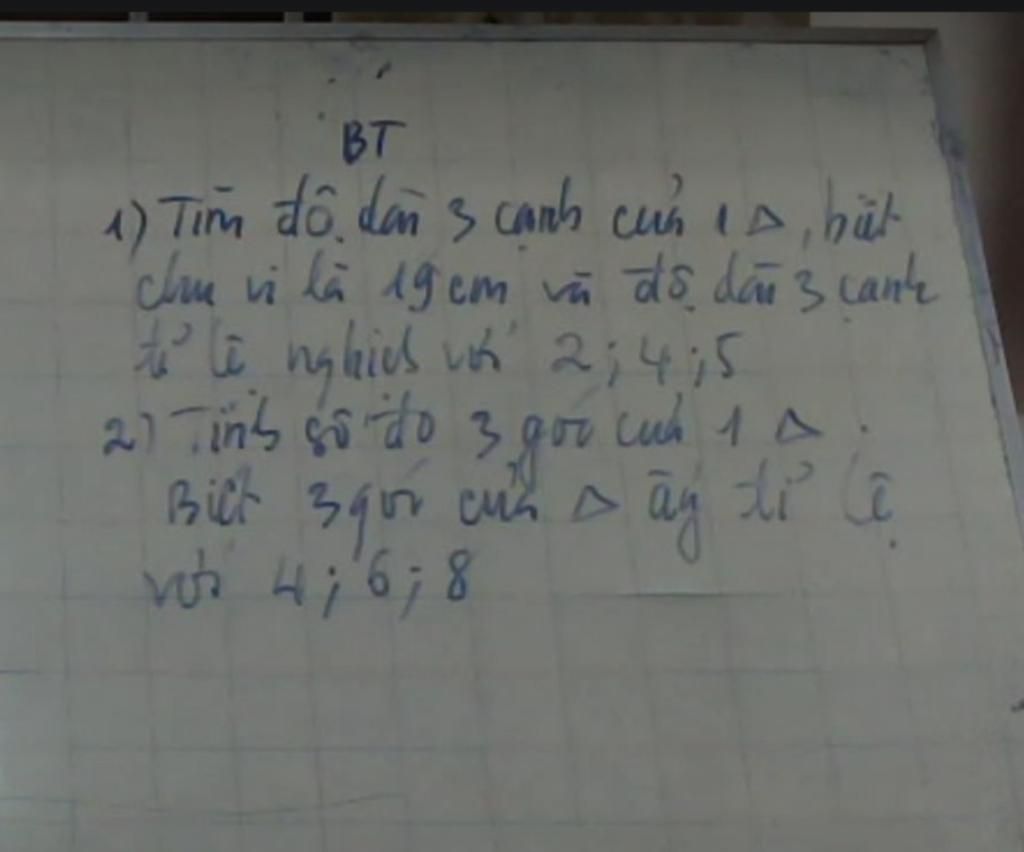 BT
1) Tìm độ dài 3 cạnh của 1 Δ, biết
chu vi là 19cm và độ dài 3 cạnh
tỉ lệ nghịch với 2; 4; 5
2) Tính số đo 3 góc của 1 Δ.
Biết 3 góc của Δ ấy tỉ lệ
với 4; 6; 8